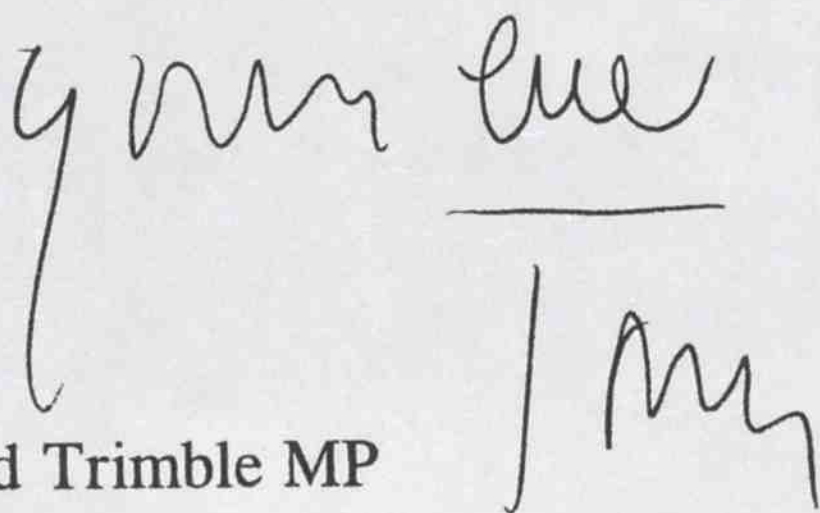 Yours ever
d Trimble MP